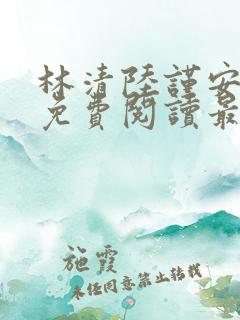 林清陸謹安
免費閱讀最
施霞
未经同意禁止转载